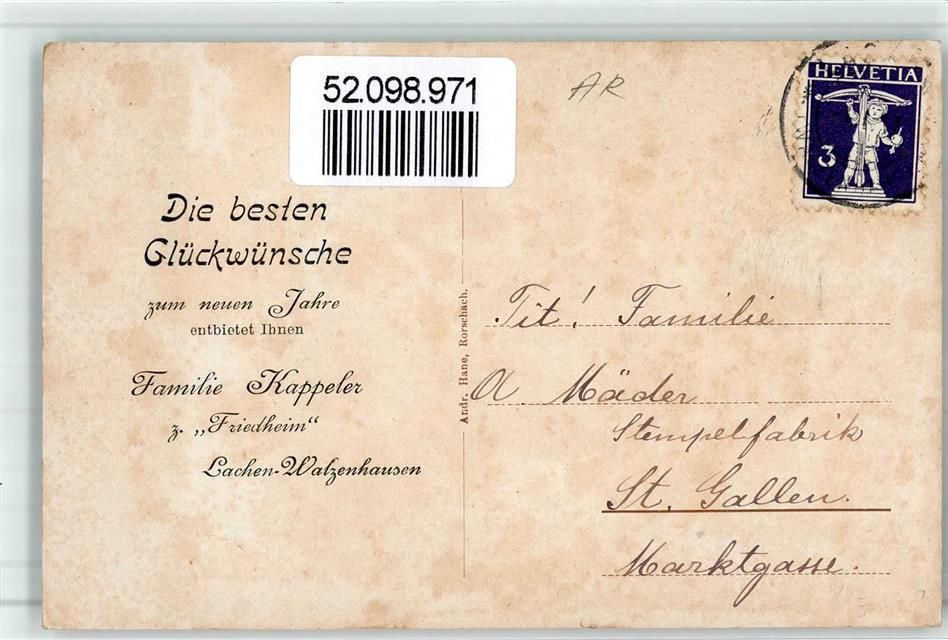 52.098.971
AR
HELVETIA
3
Die besten
Glückwünsche
zum neuen Jahre
entbietet Ihnen
Familie Kappeler
z. „Friedheim“
Lachen-Walzenhausen
Andr. Hane, Rorschach.
Tit! Familie
A Mäder
Stempelfabrik
St. Gallen.
Marktgasse.